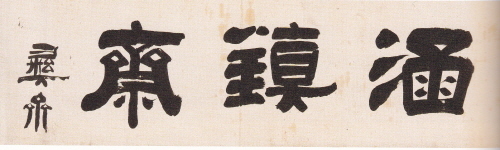 涵鎮齋